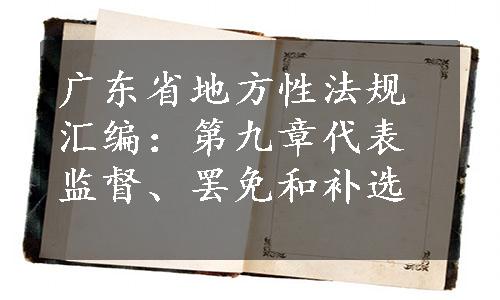 广东省地方性法规
汇编：第九章代表
监督、罢免和补选